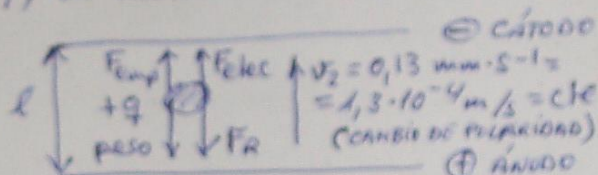 ⊖ CÁTODO
l Femp Felec v₂ = 0,13 mm·s⁻¹ =
+q = 1,3·10⁻⁴ m/s = cte
peso FR (CAMBIO DE POLARIDAD)
⊕ ÁNODO